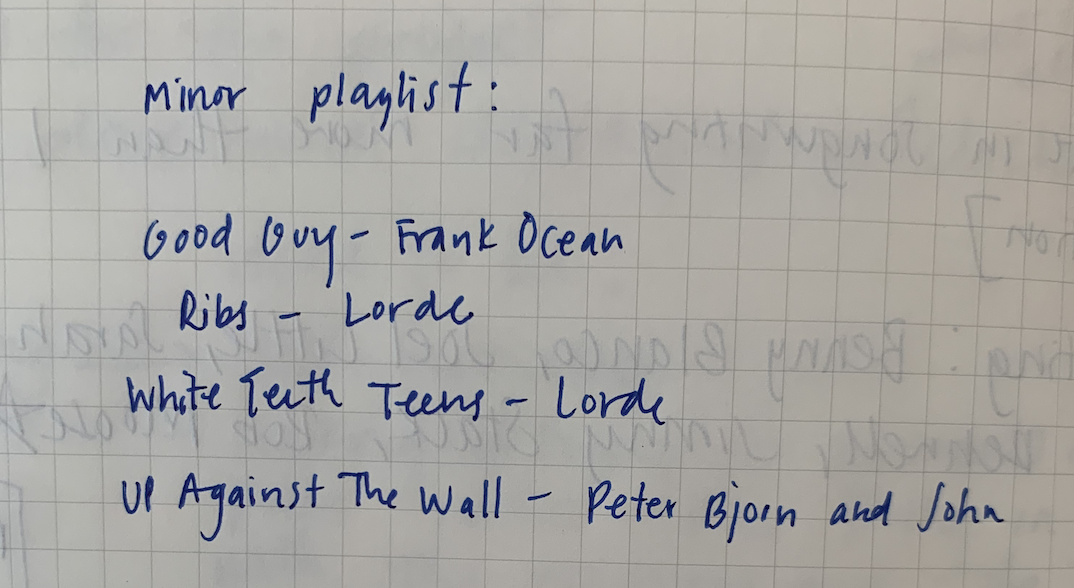 Minor playlist:
Good Guy - Frank Ocean
Ribs - Lorde
White Teeth Teens - Lorde
Up Against The Wall - Peter Bjorn and John